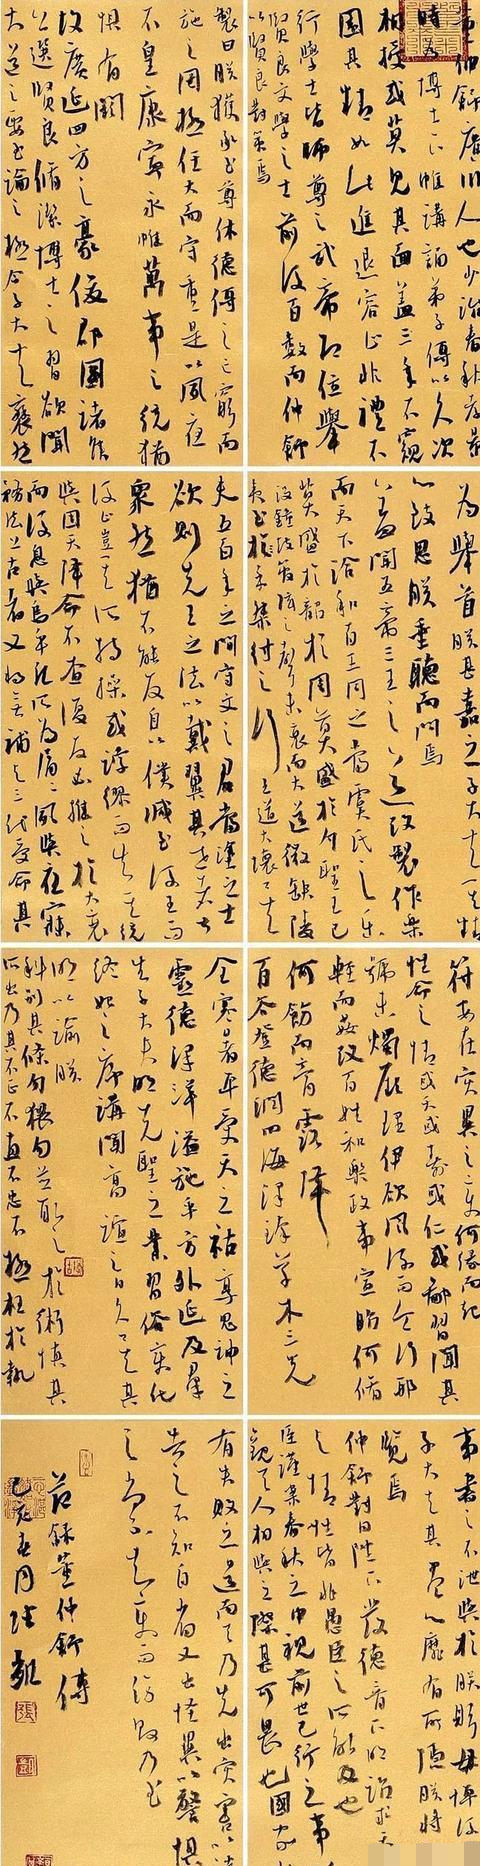 董仲舒廣川人也少治春秋孝景
時為博士下帷講誦弟子傳以久次
相授或莫見其面蓋三年不窺
園其精如此進退容止非禮不
行學士皆師尊之武帝即位舉
賢良文學之士前後百數而仲舒
以賢良對策焉
製曰朕獲承至尊休德傳之亡窮而
施之罔極任大而守重是以夙夜
不皇康寧永惟萬事之統猶
懼有闕
故廣延四方之豪俊郡國諸侯
公選賢良脩潔博士之習欲聞
大道之要至論之極今子大夫褎然
為舉首朕甚嘉之子大夫其精
心致思朕垂聽而問焉
蓋聞五帝三王之道改製作樂
而天下洽和百王同之當虞氏之樂
莫盛於韶於周莫盛於勺聖王已
沒鐘鼓筦絃之聲未衰而大道微缺陵
夷至於桀紂之行王道大壞矣
夫五百年之間守文之君當塗之士
欲則先王之法以戴翼其世者甚
眾然猶不能反日以僕滅至後王而
後止豈其所持操或誖繆而失其統
與固天降命不查復反必推之於大衰
而後息與烏乎凡所為屑屑夙興夜寐
務法上古者又將無補與三代受命其
符安在災異之變何緣而起
性命之情或夭或壽或仁或鄙習聞其
號未燭厥理伊欲風流而令行刑
輕而姦改百姓和樂政事宣昭何脩
何飭而膏露降
百谷登德潤四海澤臻草木三光
全寒暑平受天之祜享鬼神之
靈德澤洋溢施乎方外延及群
生子大夫明先聖之業習俗變化
終始之序講聞高誼之日久矣其
明以諭朕
科別其條勿猥勿並取之於術慎其
所出乃其不正不直不忠不極枉於執
事書之不泄興於朕躬毋悼後
子大夫其盡心靡有所隱朕將
覽焉
仲舒對曰陛下發德音下明詔求天
與情性皆非愚臣之所能及也
臣謹案春秋之中視前世已行之事
觀天人相與之際甚可畏也國家
有失敗之道而天乃先出災害以譴
告之不知自省又出怪異以警懼
之尚不知變而傷敗乃至
節錄董仲舒傳
己亥春月張